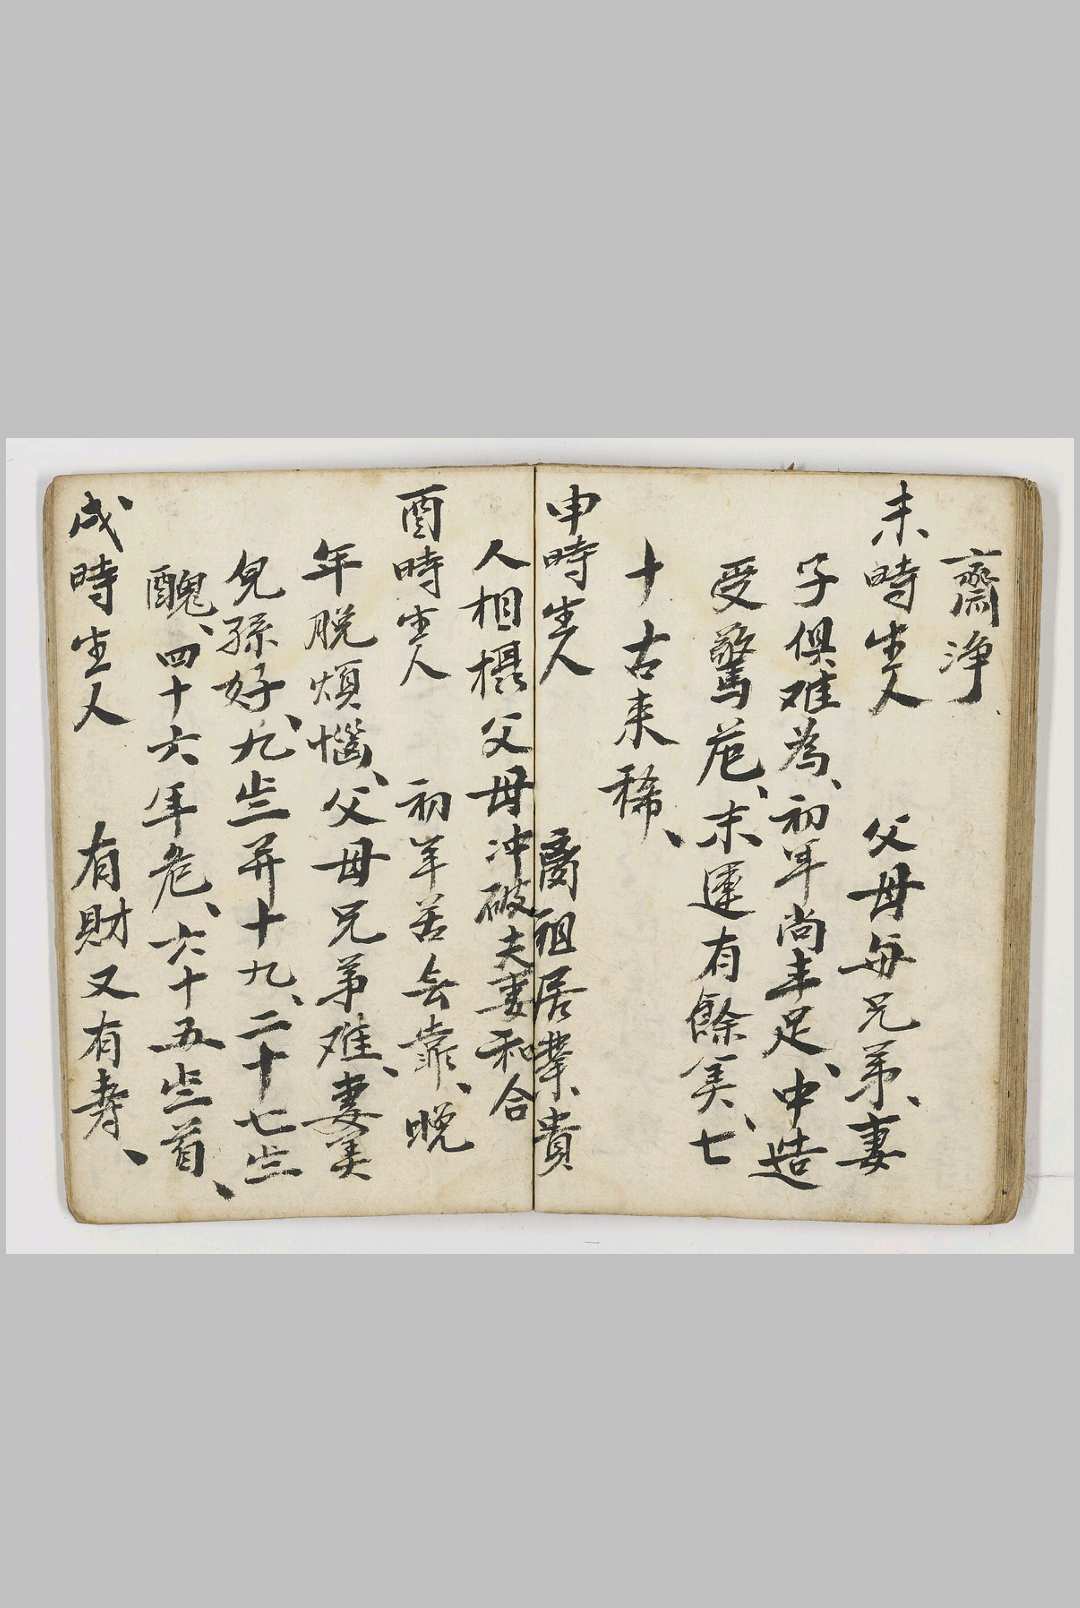 齋淨
未時生人 父母每兄弟、妻
子俱难為、初年尚丰足、中造
受驚危、末運有餘美、七
十古来稀、
申時生人 离祖居業、貴
人相攝父母冲破夫妻和合
酉時生人 初年苦無靠、晚
年脱煩惱、父母兄弟难、妻美
兒孫好、九岁并十九、二十七岁
醜、四十六年危、六十五岁首、
戌時生人 有財又有寿、